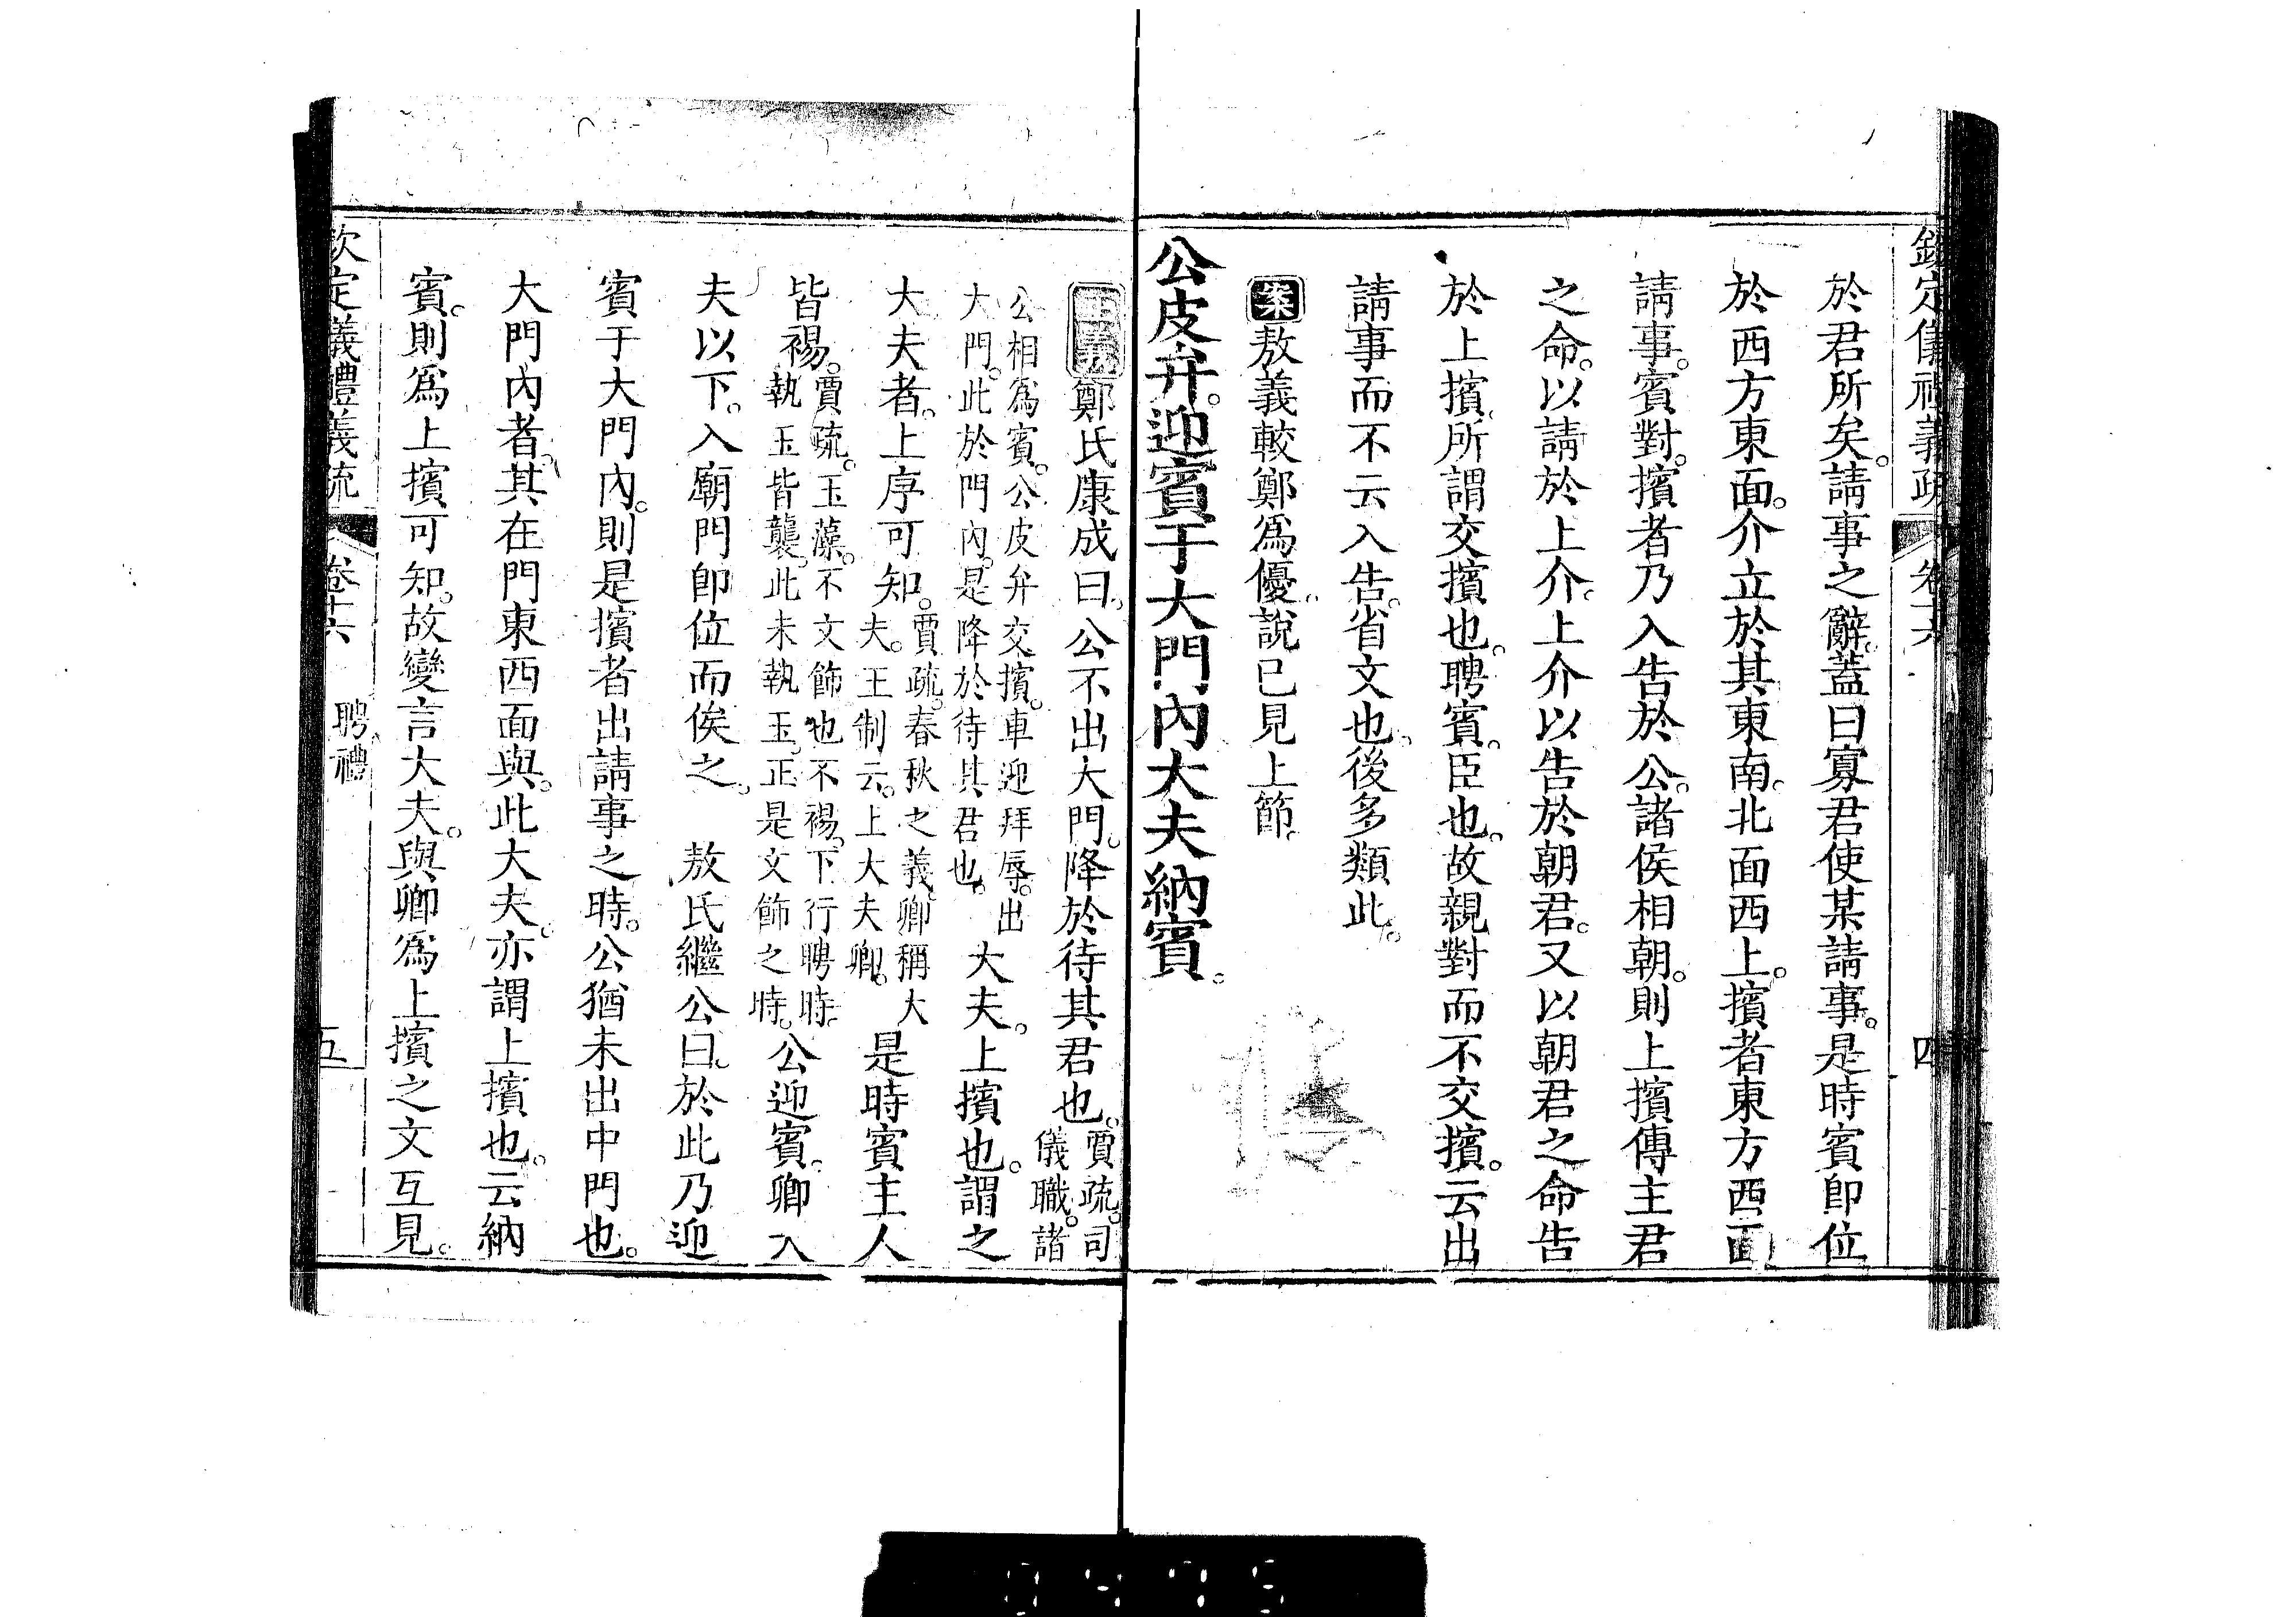 欽定儀禮義疏 卷十六 四
於君所矣。請事之辭。蓋曰寡君使某請事。是時賓卽位
於西方東面。介立於其東南。北面西上。擯者東方西面
請事。賓對。擯者乃入告於公。諸侯相朝。則上擯傳主君
之命。以請於上介。上介以告於朝君。又以朝君之命告
於上擯。所謂交擯也。聘賓。臣也。故親對而不交擯。云出
請事而不云入告。省文也。後多類此。
案敖義較鄭爲優。說已見上節。
公皮弁。迎賓于大門內。大夫納賓。
正義鄭氏康成曰。公不出大門。降於待其君也。賈疏。司儀職。諸
公相爲賓。公皮弁交擯。車迎拜辱。出大門。此於門內。是降於待其君也。大夫。上擯也。謂之
大夫者。上序可知。賈疏。春秋之義。卿稱大夫。王制云。上大夫卿。是時賓主人
皆裼。賈疏。玉藻。不文飾也不裼。下行聘時。執玉皆襲。此未執玉。正是文飾之時。公迎賓。卿入
夫以下。入廟門卽位而俟之。 敖氏繼公曰。於此乃迎
賓于大門內。則是擯者出請事之時。公猶未出中門也。
大門內者。其在門東西面與。此大夫。亦謂上擯也。云納
賓。則爲上擯可知。故變言大夫。與卿爲上擯之文互見。
欽定儀禮義疏 卷十六 聘禮 五